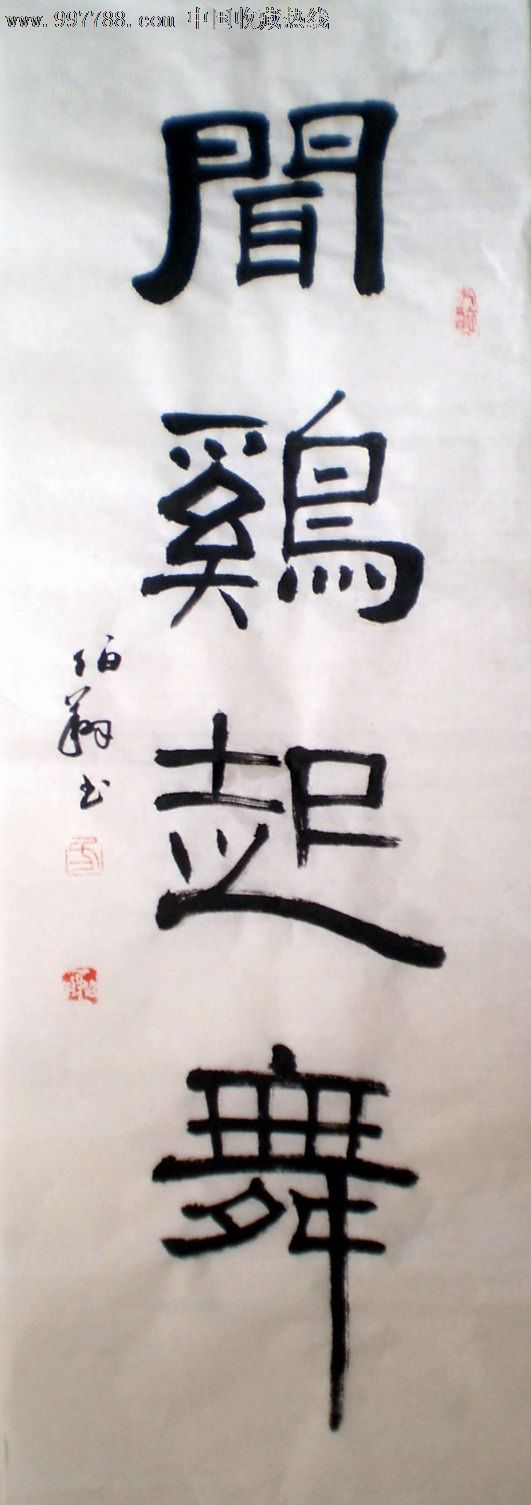 www.997788.com 中国收藏热线
聞鷄起舞
伯翔书